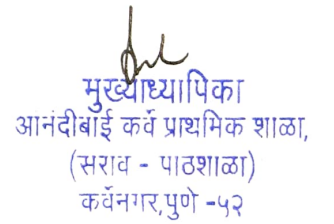 मुख्याध्यापिका
आनंदीबाई कर्वे प्राथमिक शाळा,
(सराव - पाठशाळा)
कर्वेनगर,पुणे -५२